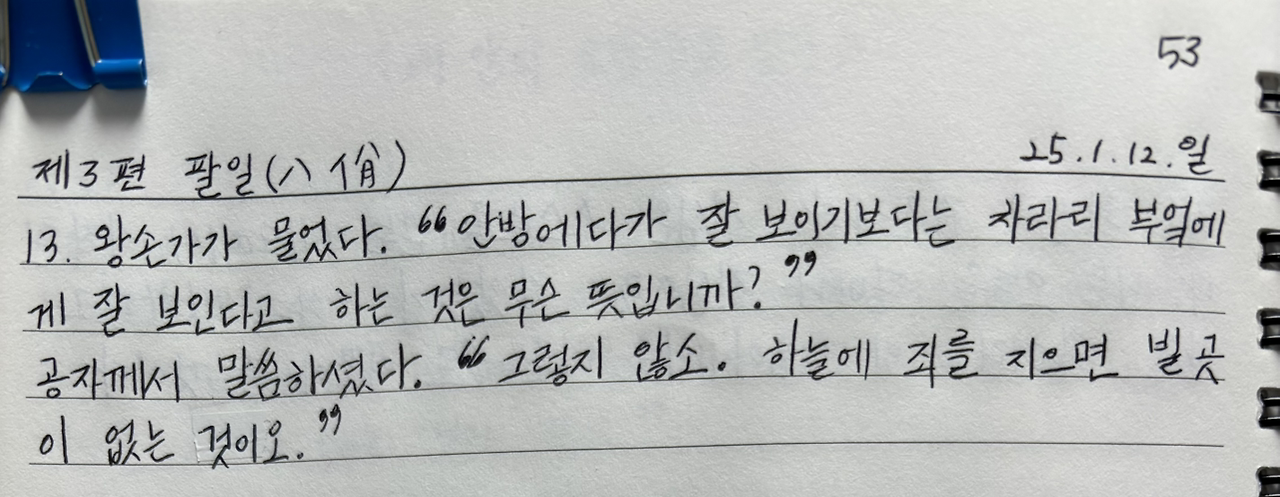 53
제3편 팔일(八佾) 25.1.12.일
13. 왕손가가 물었다. "안방에다가 잘 보이기보다는 차라리 부엌에
게 잘 보인다고 하는 것은 무슨 뜻입니까?"
공자께서 말씀하셨다. "그렇지 않소. 하늘에 죄를 지으면 빌 곳
이 없는 것이오."